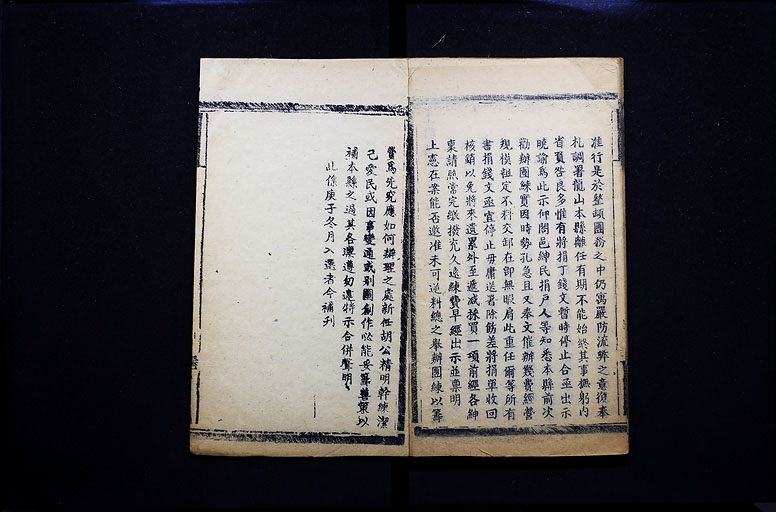 准行是於整頓團務之中仍寓嚴防流弊之意復奉
札調署龍山本縣離任有期不能始終其事撫躬內
省負咎良多惟有將捐丁錢文暫時停止合亟出示
曉諭爲此示仰闔邑紳民捐戶人等知悉本縣前次
勸辦團練實因時勢孔急且又奉文催辦幾費經營
規模粗定不料交卸在卽無暇肩此重任爾等所有
書捐錢文亟宜停止毋庸送署除飭差將捐單收回
核銷以免將來遺累外至遞減採買一項前經各紳
稟請照常完繳撥充久遠練費早經出示並稟明
上憲在案能否邀准未可逆料總之舉辦團練以籌
費爲先究應如何辦理之處新任胡公精明幹練潔
己愛民或因事變通或別圖創作必能妥籌善策以
補本縣之過其各凜遵勿違特示合併聲明
此係庚子冬月入選者今補刊